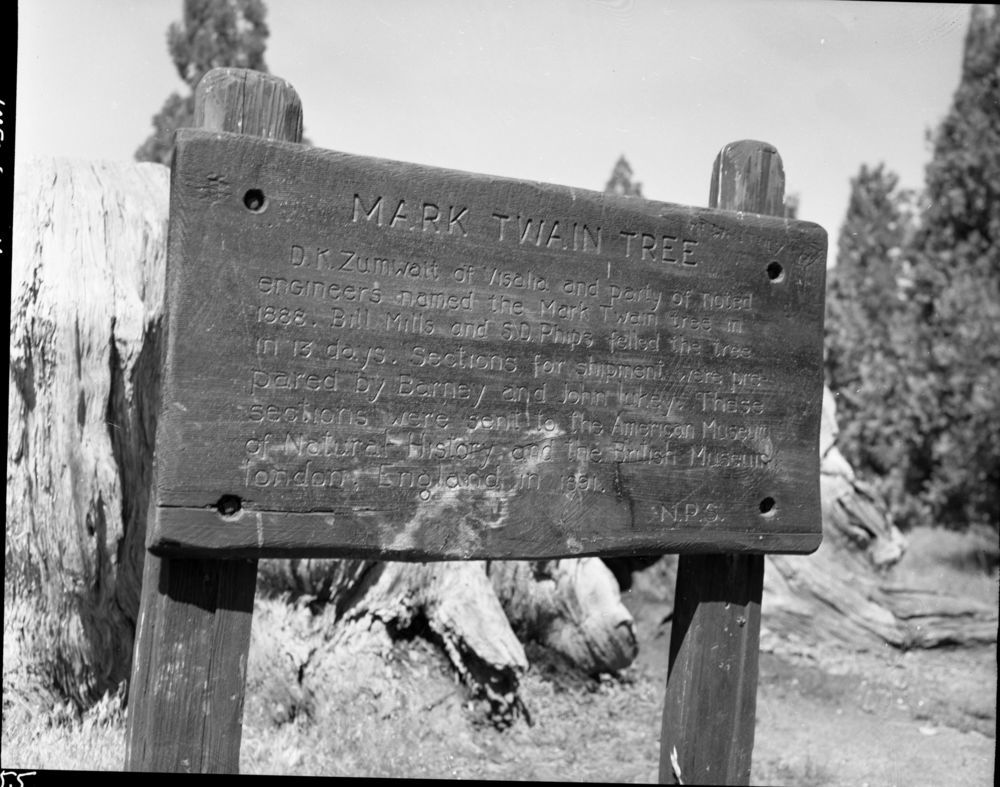 MARK TWAIN TREE
D.K. Zumwalt of Visalia and party of noted
engineers named the Mark Twain tree in
1888. Bill Mills and S.D. Phips felled the tree
in 13 days. Sections for shipment were pre-
pared by Barney and John lukey. These
sections were sent to the American Museum
of Natural History and the British Museum,
london, England in 1891.
N.P.S.